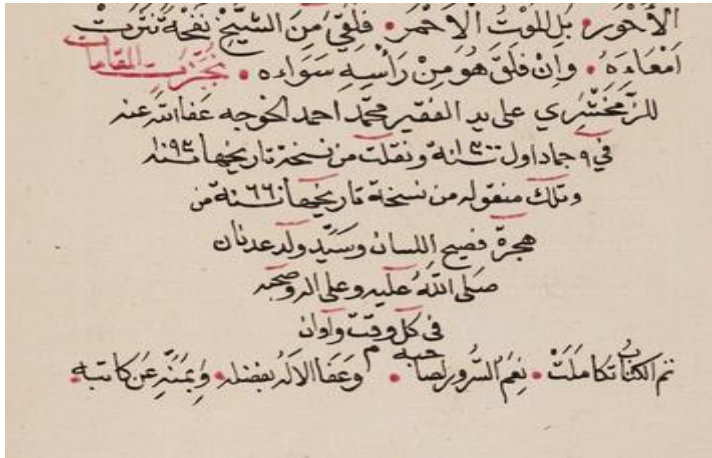 الأحور • بل للموت الأحمر • فلقي من الشيخ نفحة نترت
امعاءه • وان فلق هو من رأسه سواءه • نجزت المقامات
للزمخشري على يد الفقير محمد احمد الخوجه عفا الله عنه
في ٩ جماد اول سنة ١٣٠٠ ونقلت من نسخة تاريخها سنه ١٠٩٣
وتلك منقوله من نسخة تاريخها سنة ٦٦٠ من
هجرة فصيح اللسان وسيد ولد عدنان
صلى الله عليه وعلى اله وصحبه
في كل وقت وآوان
تم الكتاب تكاملت • نعم السرور لصاحبه م • وعفا الاله بفضله • وبمنه عن كاتبه •